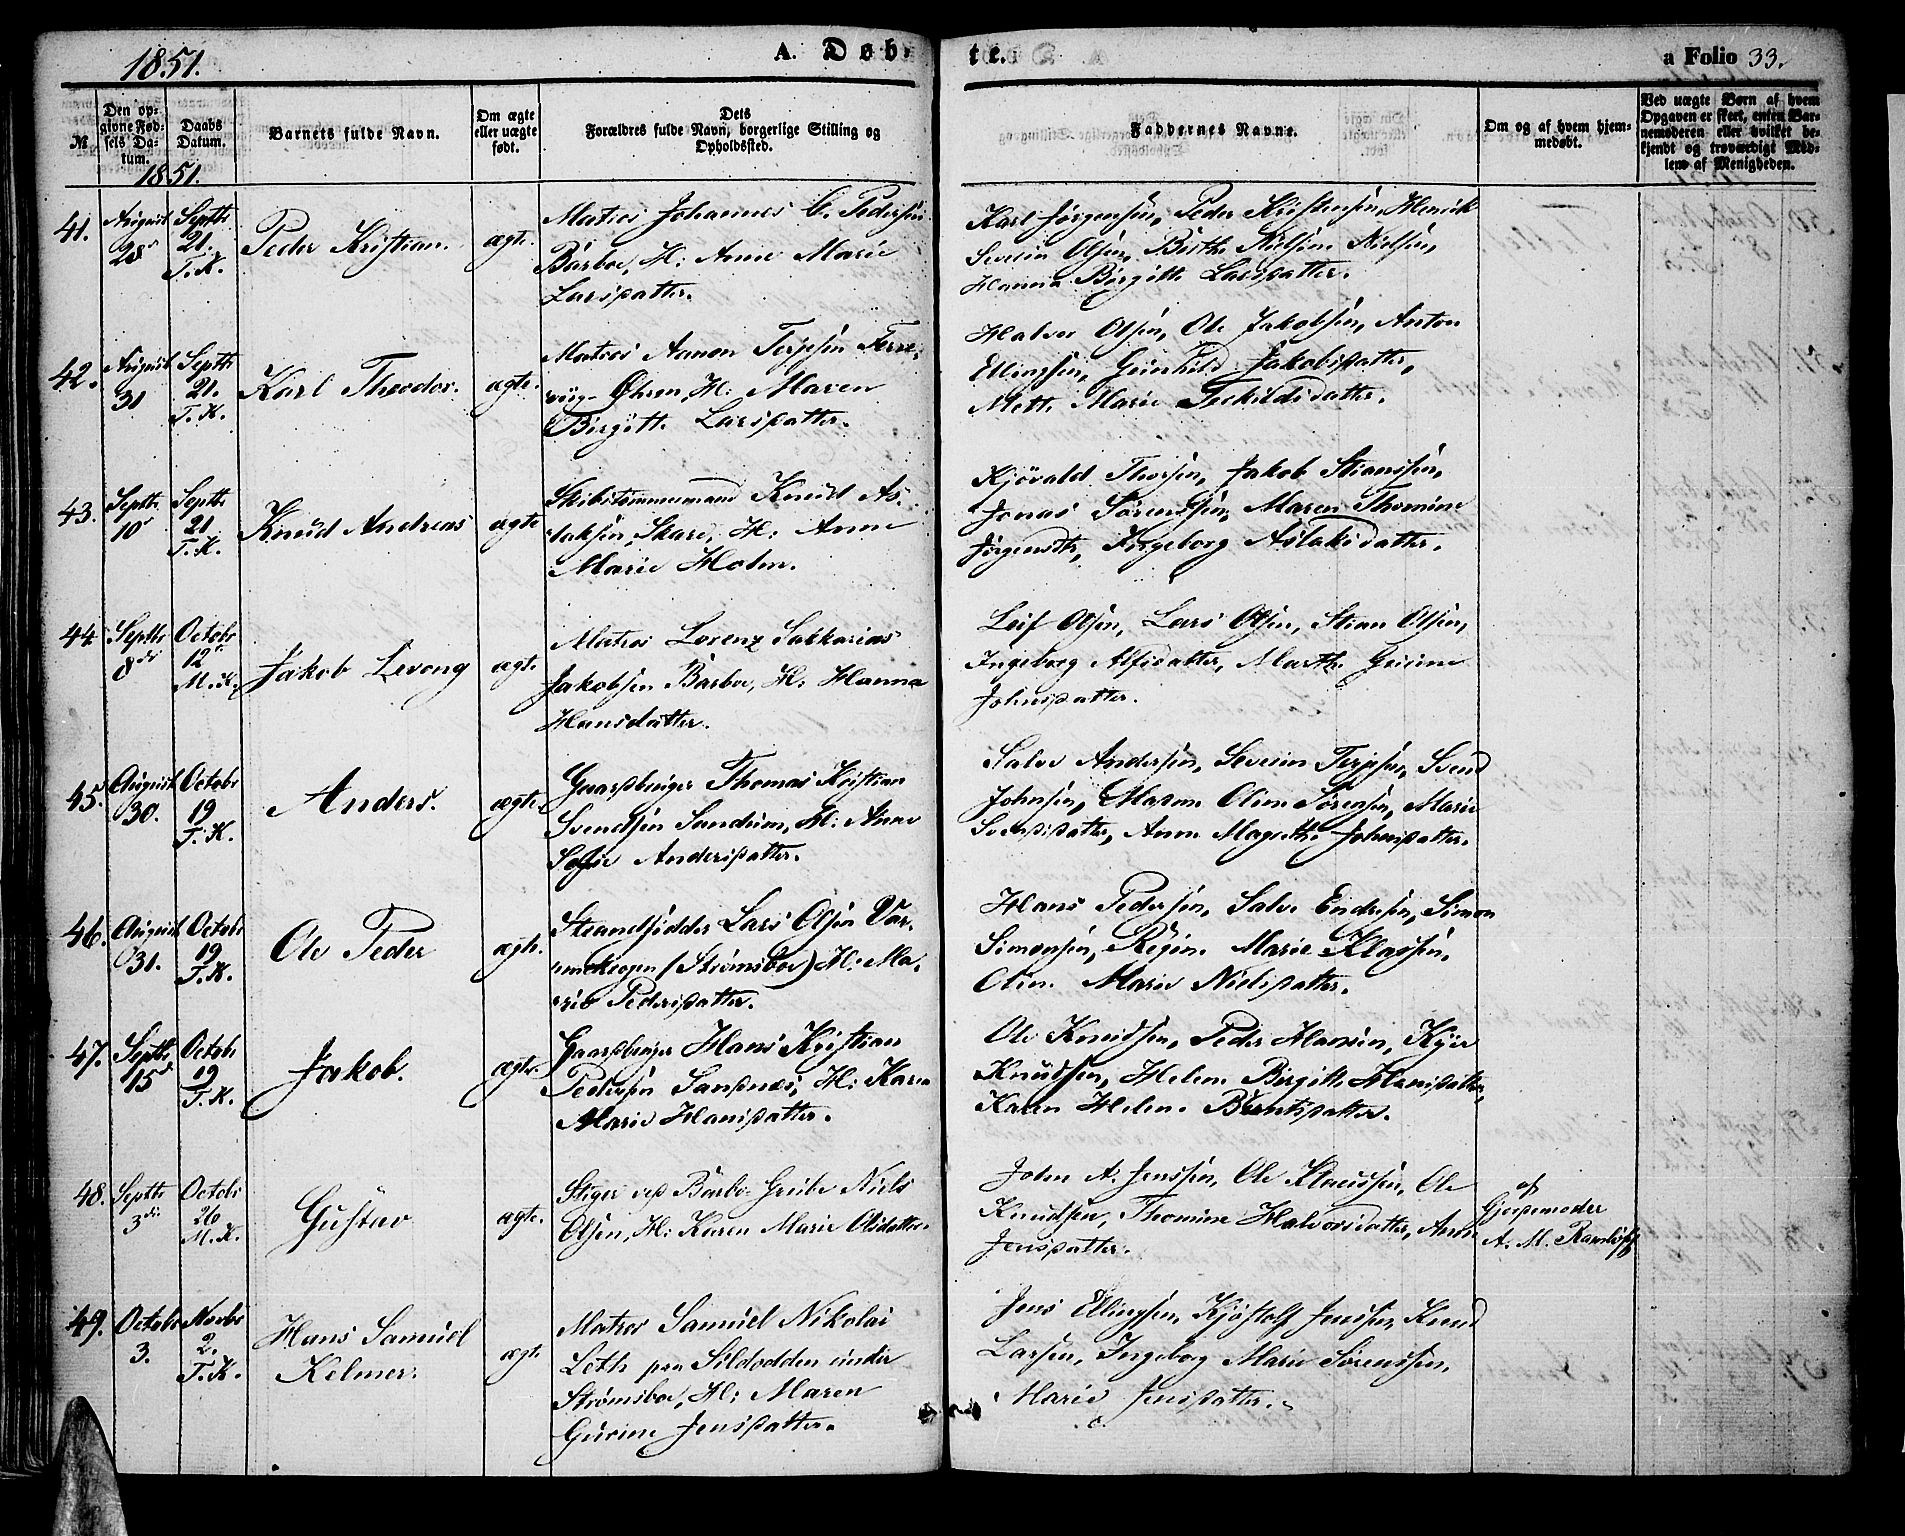 1851.
A. Døbte.
a Folio 33.
№
Den opgivne Fødsels Datum.
Daabs Datum.
Barnets fulde Navn.
Om ægte eller uægte født.
Dets Forældres fulde Navn, borgerlige Stilling og Opholdssted.
Faddernes Navne.
Om og af hvem hjemmedøbt.
Ved uægte Børn af hvem Opgaven er skeet, enten Barnemoderen eller hvilket bekjendt og troværdigt Medlem af Menigheden.
1851.
41. August 28 Septbr 21. T. K. Peder Kristian. ægte.
Matros Johannes C. Pedersen
Barboe, H: Anne Marie
Larsdatter.
Karl Jørgensen, Peder Kristensen, Henrik
Severin Olsen, Birthe Nielsine Nielsen,
Hanna Birgitte Larsdatter.
42. August 31 Septbr 21. T. K. Karl Theodor. ægte.
Matros Aanon Terjesen Fære-
vig-Øhren, H: Maren
Birgitte Larsdatter.
Halvor Olsen, Ole Jakobsen, Anton
Ellingsen, Gunhild Jakobsdatter,
Mette Marie Terkildsdatter.
43. Septbr 10 Septbr 21. T. K. Knud Andreas ægte
Skibstømmermand Knud As-
laksen, Skare, H: Anne
Marie Holm.
Kjøvald Thorsen, Jakob Stiansen,
Jonas Sørensen, Maren Thomine
Jørgensdtr, Ingeborg Aslaksdatter.
44. Septbr 8de Octobr 12 M. K. Jakob Levong ægte
Matros Lorenz Sakkarias
Jakobsen Barboe, H: Hanna
Hansdatter.
Leif Olsen, Lars Olsen, Stian Olsen,
Ingeborg Alfsdatter, Marthe Gurine
Johnsdatter.
45. August 30. Octobr 19 T. K. Anders. ægte.
Gaardbruger Thomas Kristian
Svendsen Sandum, H: Anne
Sofie Andersdatter.
Salve Andersen, Severin Terjesen, Svend
Johnsen, Maren Oline Sørensen, Marie
Svensdatter, Anne Magrethe Johnsdatter.
46. August 31. Octobr 19 T. K. Ole Peder ægte.
Strandsidder Lars Olsen Var-
(Strømsboe) H: Ma-
rie Pedersdatter.
Hans Pedersen, Salve Endresen, Simon
Simonsen, Regine Marie Klassen,
Oline Marie Nielsdatter.
47. Septbr 15 Octobr 19 T. K. Jakob. ægte.
Gaardbruger Hans Kristian
Pedersen Sandnæs, H: Karen
Marie Hansdatter.
Ole Knudsen, Peder Hansen, Kyer
Knudsen, Helene Birgitte Hansdatter,
Karen Helene Berntsdatter.
48. Septbr 3die Octobr 26 M. K. Gustav ægte.
Stiger ved Barbo Grube Niels
Olsen, H: Karen Marie Olsdatter.
John A. Jenssen, Ole Klaussen, Ole
Knudsen, Thomine Halvorsdatter, Anne
Jensdatter.
af
Gjordemoder
A. M.
49. Octobr 3. Novbr 2. T. K. Hans Samuel
Kelmer. ægte
Matros Samuel Nikolai
Loth paa Sildodden under
Strømsboe, H: Maren
Gurine Jensdatter.
Jens Ellingsen, Kjøstolf Jensen, Knud
Larsen, Ingeborg Marie Sørensen,
Marie Jensdatter.